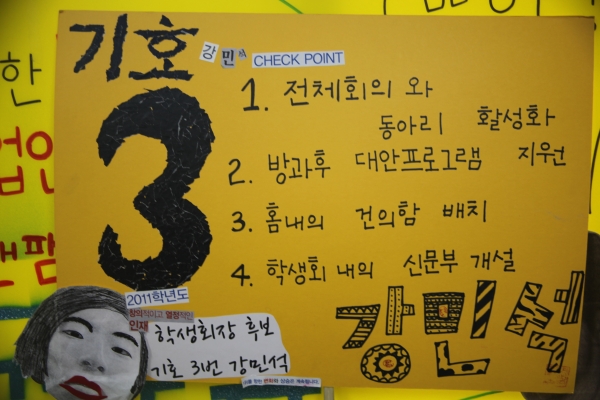 기호
강민석 CHECK POINT
3
1. 전체회의 와
동아리 활성화
2. 방과후 대안프로그램 지원
3. 홈내의 건의함 배치
4. 학생회 내의 신문부 개설
2011학년도
창의적이고 열정적인
인재
학생회장 후보
기호 3번 강민석
강민석
한
법인